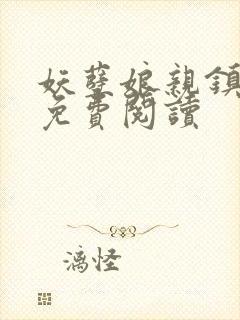 妖孽娘親鎮
免費閱讀
漓怪